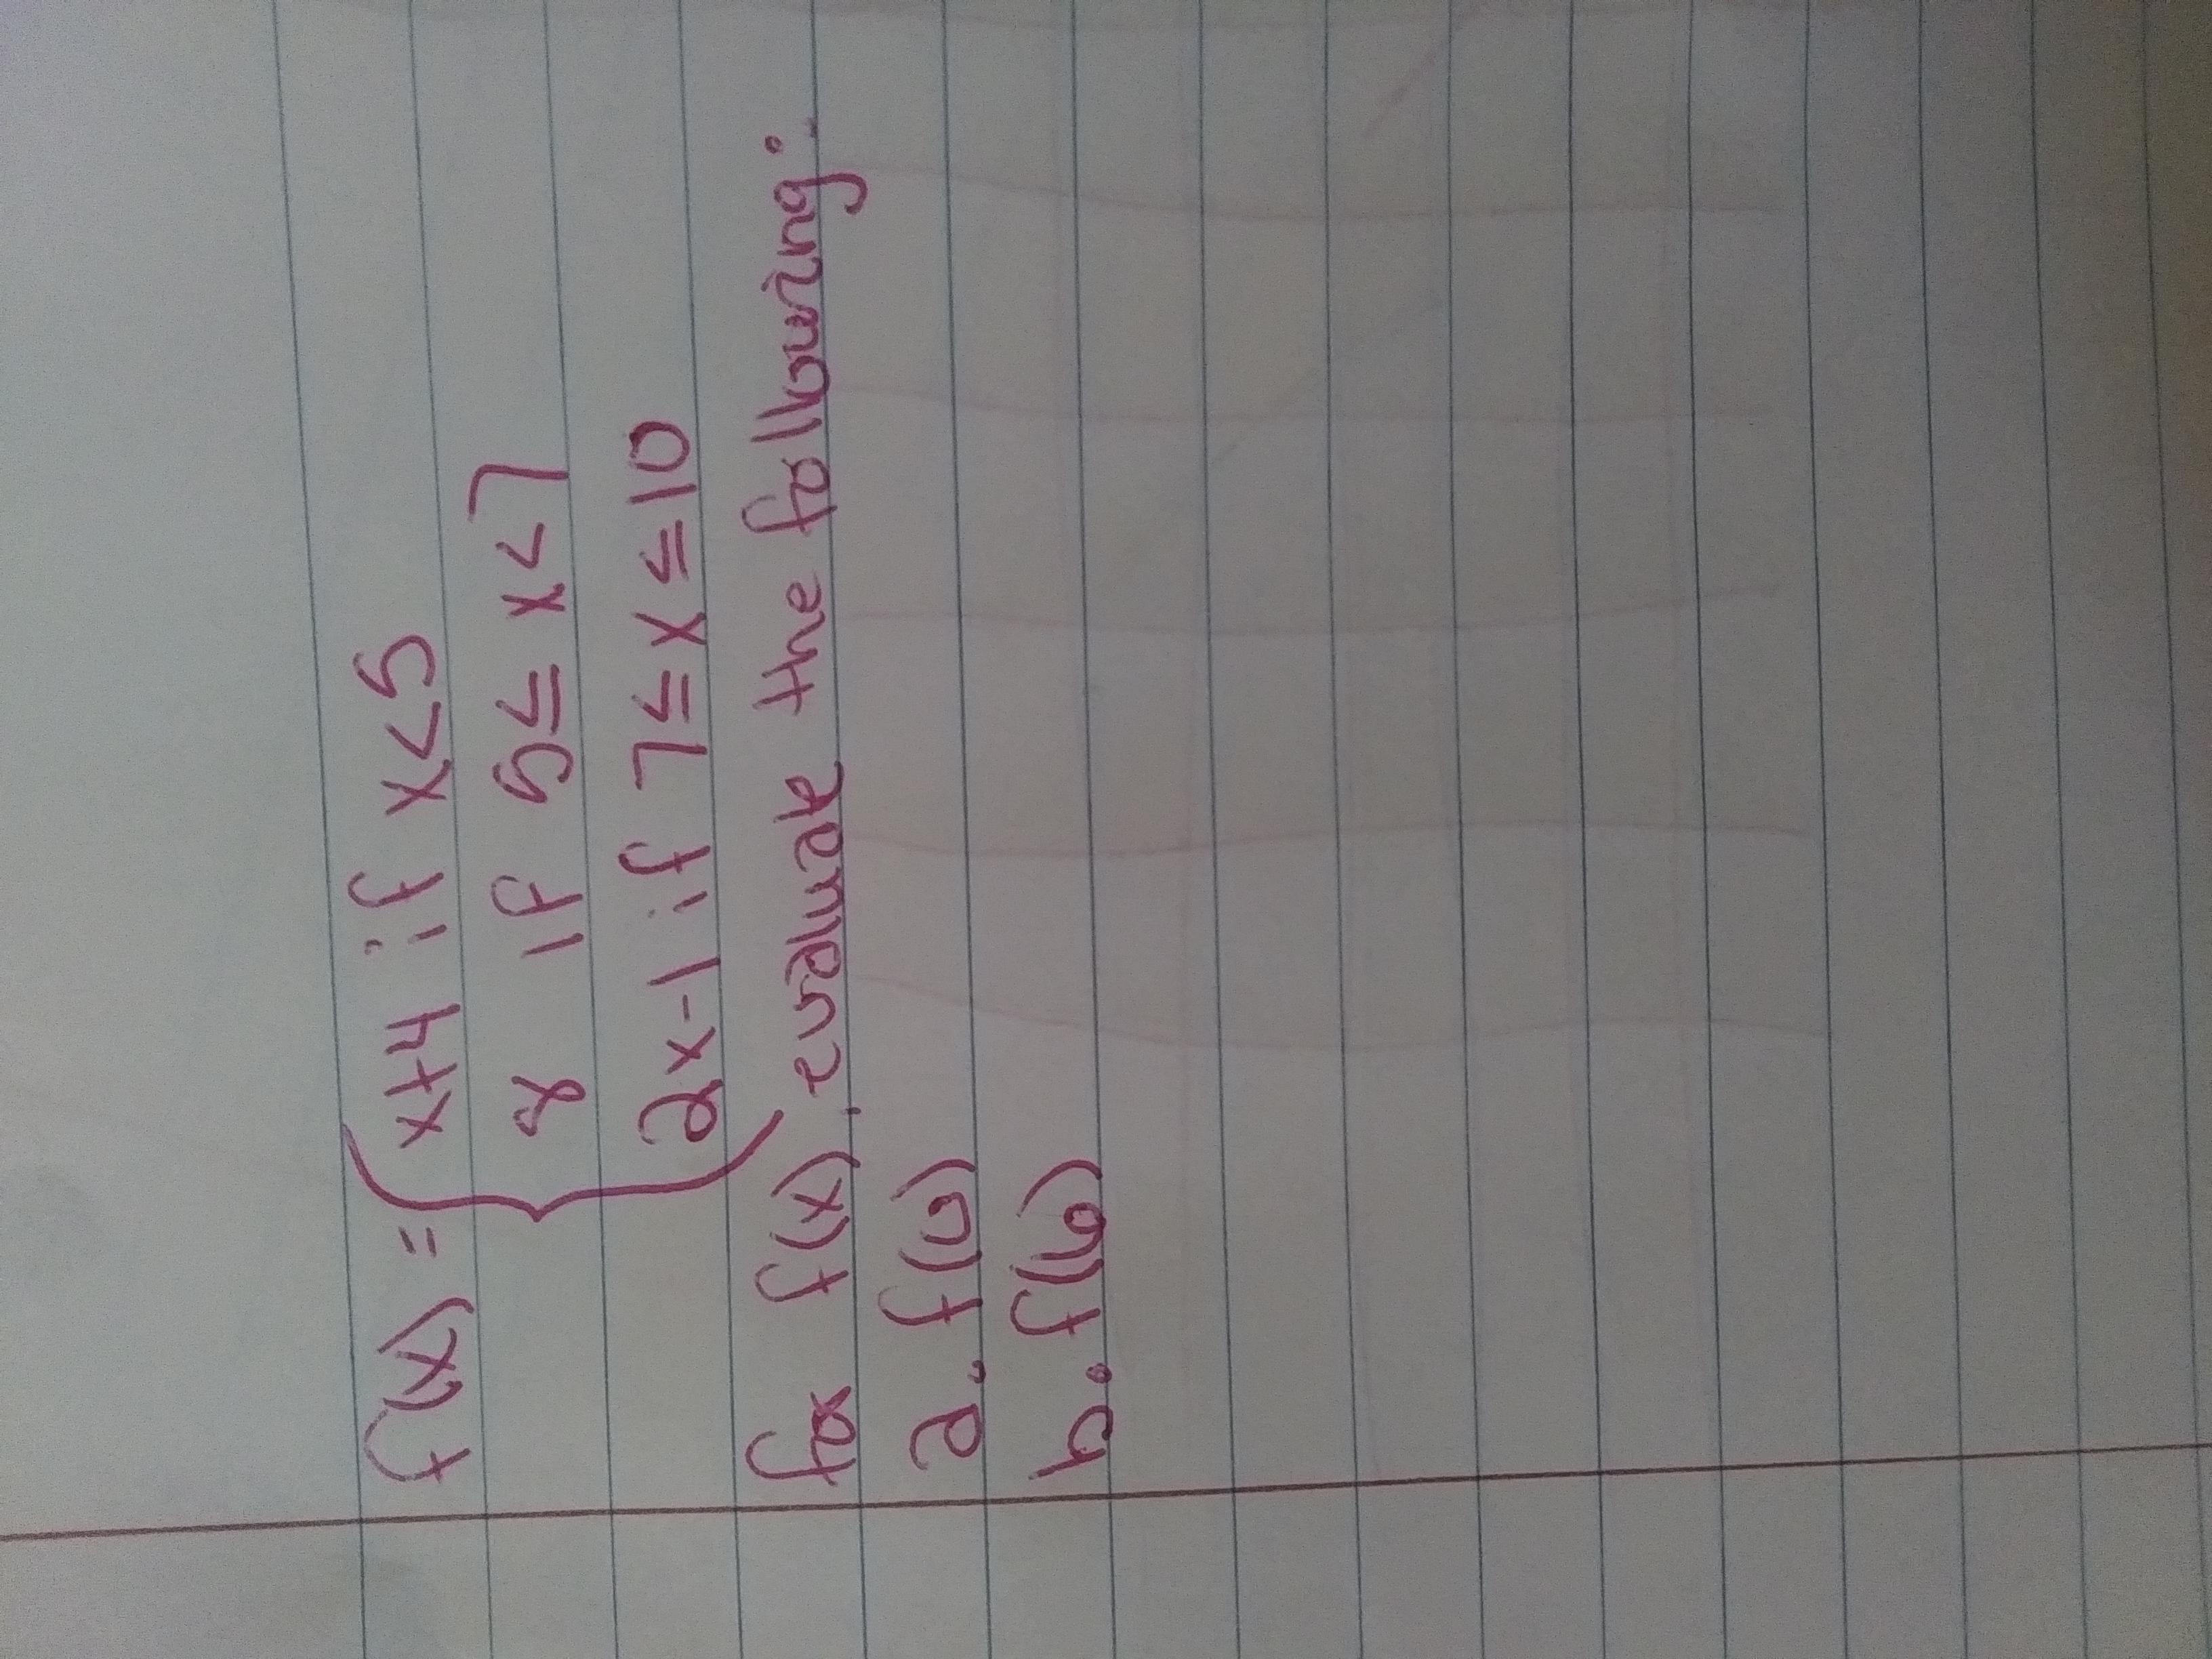 f(x) = { x+4 if x<5
8 if 5≤ x<7
2x-1 if 7≤x≤10
for f(x), evaluate the following:
a. f(0)
b. f(6)